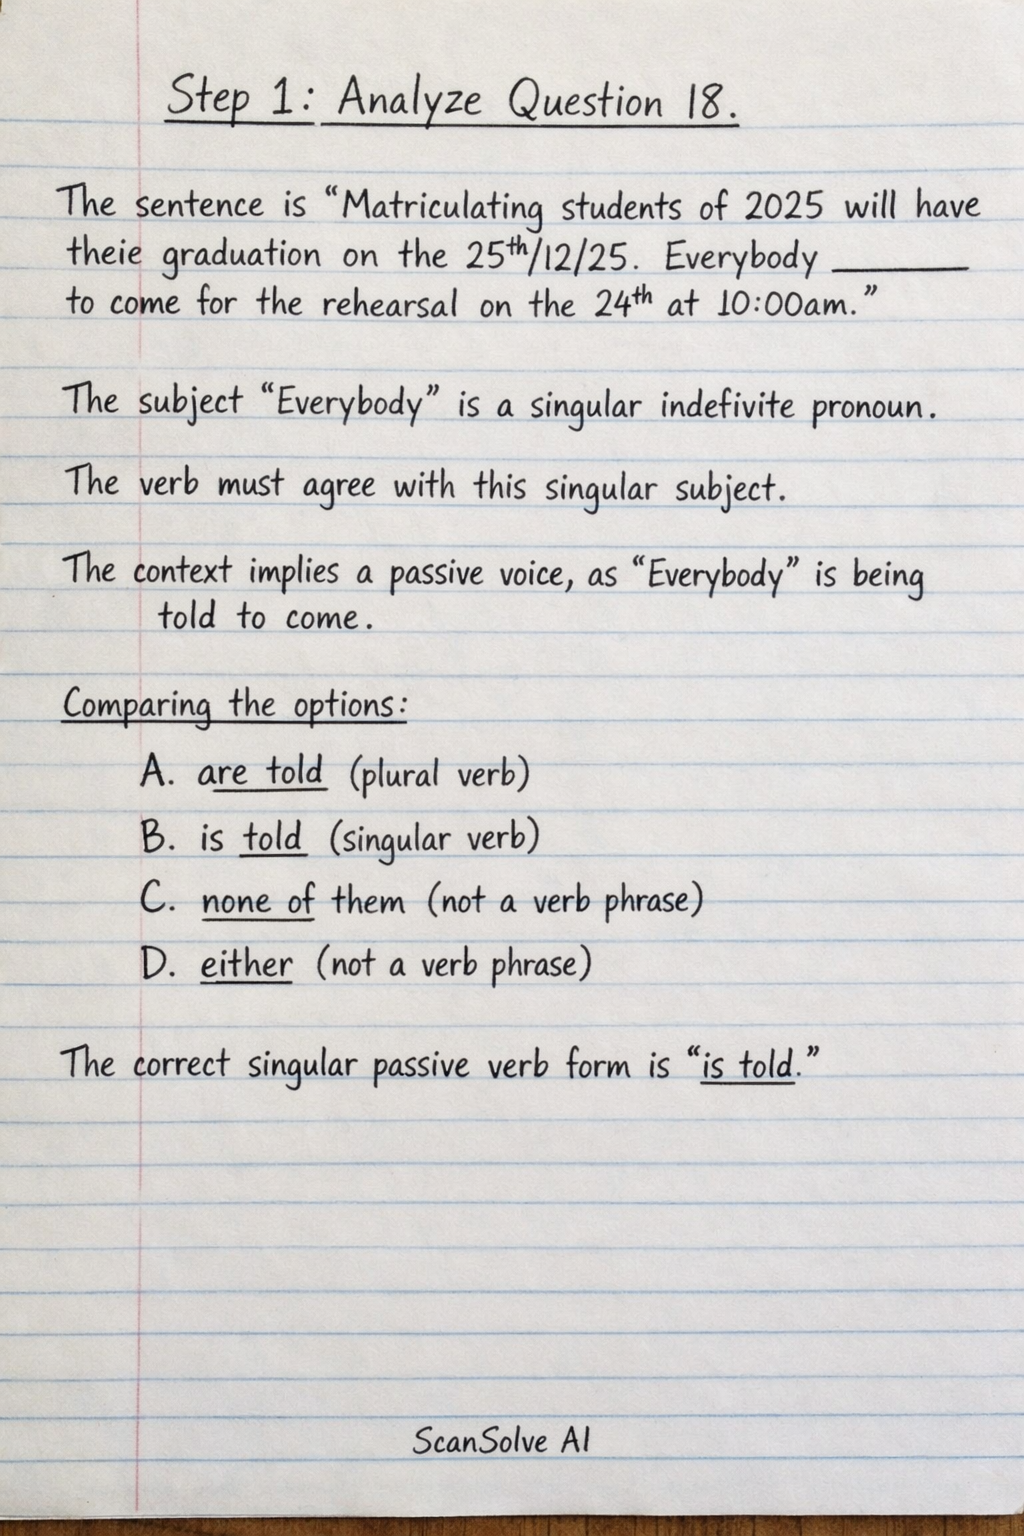 Step 1: Analyze Question 18.
The sentence is “Matriculating students of 2025 will have
theie graduation on the 25th/12/25. Everybody ________
to come for the rehearsal on the 24th at 10:00am.”
The subject “Everybody” is a singular indefivite pronoun.
The verb must agree with this singular subject.
The context implies a passive voice, as “Everybody” is being
told to come.
Comparing the options:
A. are told (plural verb)
B. is told (singular verb)
C. none of them (not a verb phrase)
D. either (not a verb phrase)
The correct singular passive verb form is “is told.”
ScanSolve AI